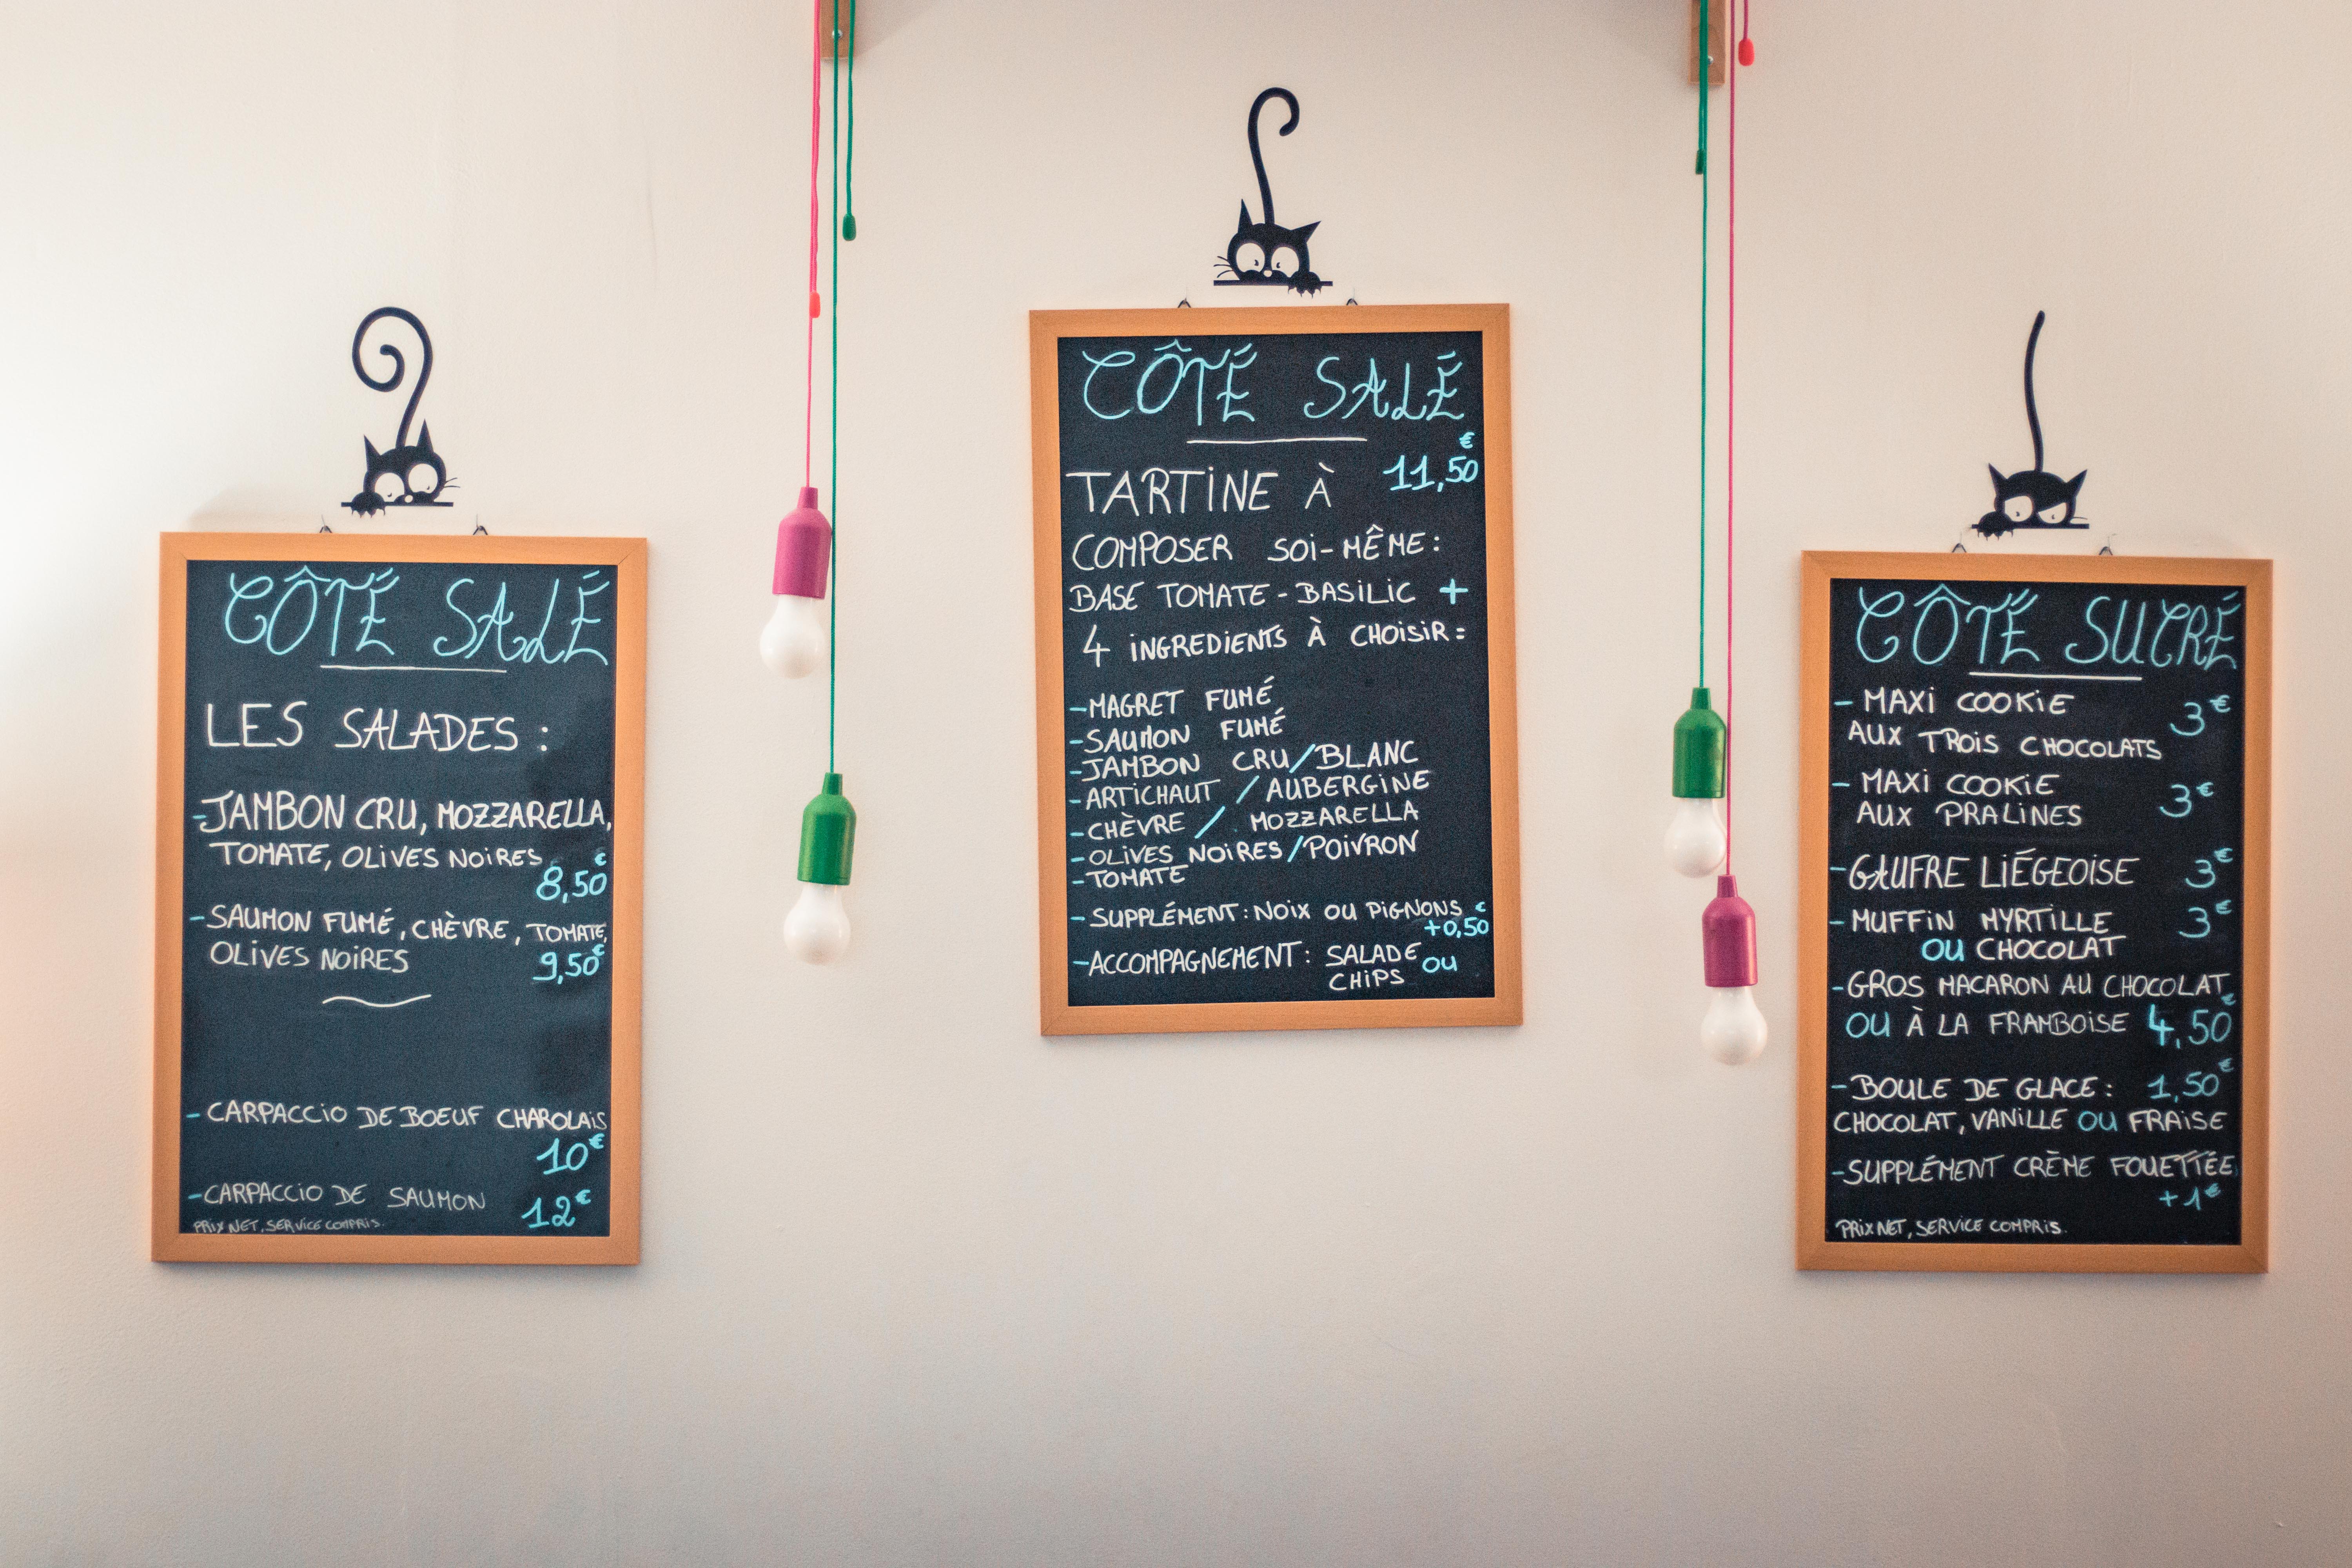 CÔTÉ SALÉ
LES SALADES :
-JAMBON CRU, MOZZARELLA,
TOMATE, OLIVES NOIRES
8,50€
-SAUMON FUMÉ, CHÈVRE, TOMATE,
OLIVES NOIRES 9,50€
-CARPACCIO DE BOEUF CHAROLAIS
10€
-CARPACCIO DE SAUMON 12€
PRIX NET, SERVICE COMPRIS.
CÔTÉ SALÉ
TARTINE À 11,50€
COMPOSER SOI-MÊME :
BASE TOMATE-BASILIC +
4 INGREDIENTS À CHOISIR :
-MAGRET FUMÉ
-SAUMON FUMÉ
-JAMBON CRU/BLANC
-ARTICHAUT / AUBERGINE
-CHÈVRE / MOZZARELLA
-OLIVES NOIRES/POIVRON
-TOMATE
-SUPPLÉMENT : NOIX OU PIGNONS
+0,50€
-ACCOMPAGNEMENT : SALADE OU
CHIPS
CÔTÉ SUCRÉ
- MAXI COOKIE 3€
AUX TROIS CHOCOLATS
- MAXI COOKIE 3€
AUX PRALINES
-GAUFRE LIÉGEOISE 3€
-MUFFIN MYRTILLE 3€
OU CHOCOLAT
-GROS MACARON AU CHOCOLAT
OU À LA FRAMBOISE 4,50€
-BOULE DE GLACE : 1,50€
CHOCOLAT, VANILLE OU FRAISE
-SUPPLÉMENT CRÈME FOUETTÉE
+1€
PRIX NET, SERVICE COMPRIS.